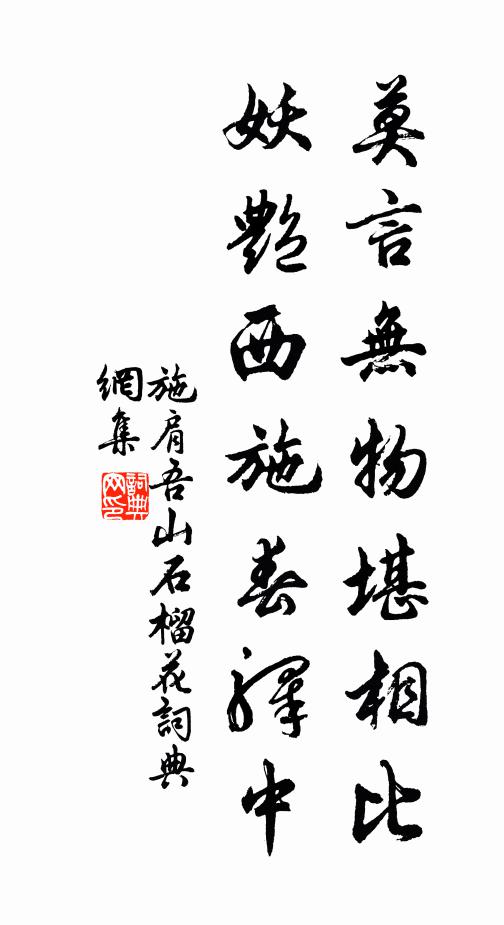 莫言無物堪相比
妖艷西施春驛中
施肩吾山石榴花詞典
網集
詞典
网印